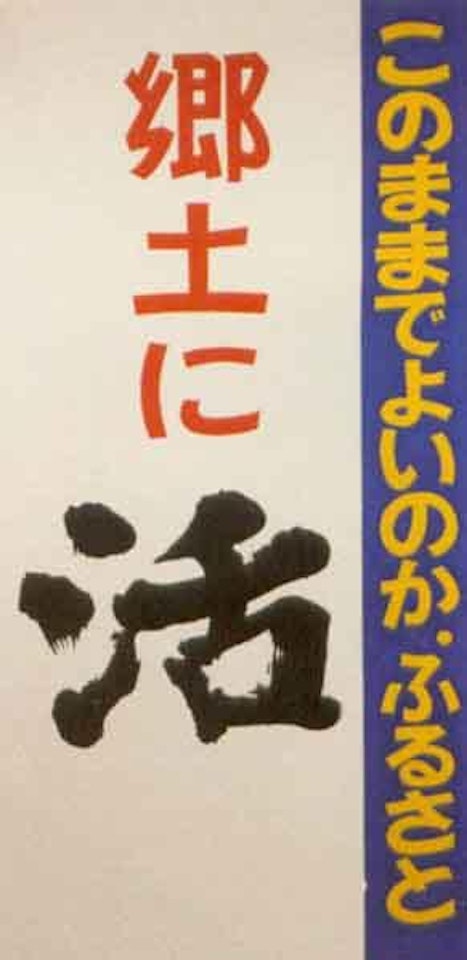 このままでよいのか.ふるさと
郷土に
活